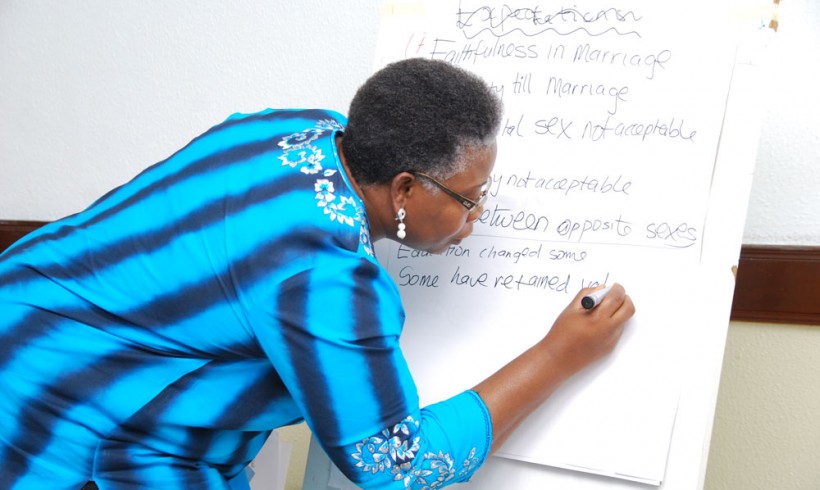 Expectations
Faithfulness in Marriage
till Marriage
sex not acceptable
not acceptable
between opposite sexes
changed some
Some have retained